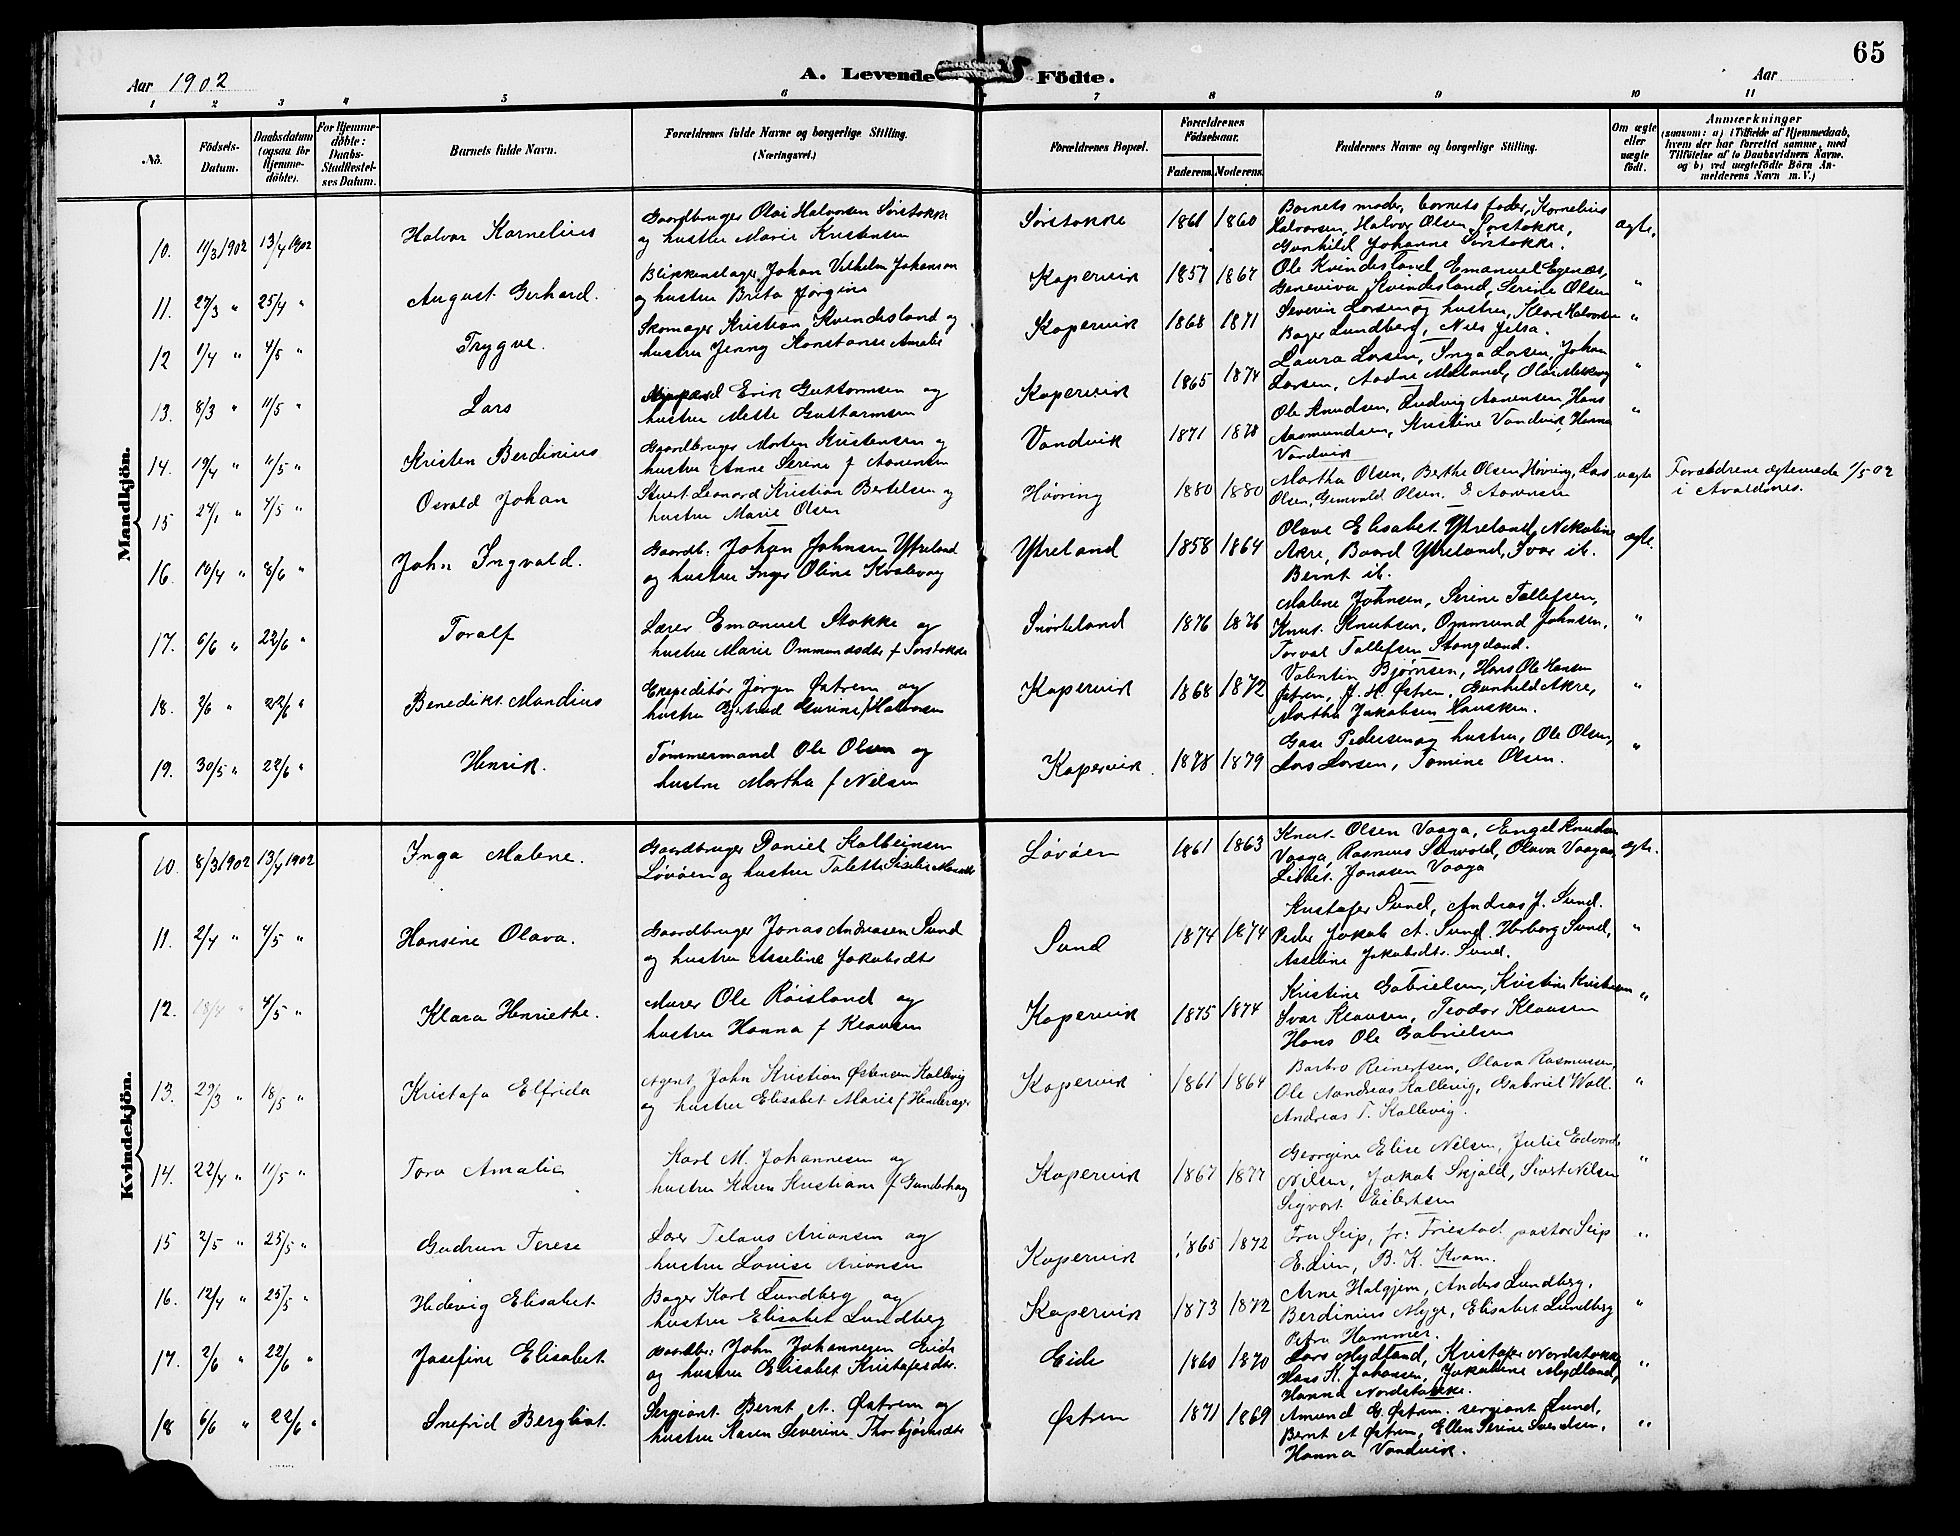 65
Aar 1902
A. Levende Födte.
Aar
1 2 3 4 5 6 7 8 9 10 11
No.
Födsels-Datum.
Daabsdatum (ogsaa for Hjemme-döbte).
For Hjemme-döbte: Daabs-Stadfæstel-ses Datum.
Barnets fulde Navn.
Forældrenes fulde Navne og borgerlige Stilling. (Næringsvei.)
Forældrenes Bopæl.
Forældrenes Födselsaar.
Faderens. Moderens.
Faddernes Navne og borgerlige Stilling.
Om ægte eller uægte födt.
Anmærkninger
(saasom: a) i Tilfælde af Hjemmedaab, hvem der har forrettet samme, med Tilföielse af to Daabsvidners Navne, og b) ved uægtefödte Börn An-melderens Navn m. V.)
Mandkjön.
10. 11/3 1902 13/4 1902 Halvor Kornelius
Gaardbruger Olai Halvorsen Sørstokke
og hustru Marie Kristensen
Sørstokke 1861 1860
Barnets moder, barnets fader, Kornelius
Halvorsen, Halvor Olsen Sørstokke,
Gunhild Johanne Sørstokke.
ægte.
11. 27/3 " 25/4 " August Gerhard.
Blikkenslager Johan Vilhelm Johansen
og hustru Brita Jørgine
Kopervik 1857 1867
Ole Kvindesland, Emanuel Egenæs,
Geneviva Kvindesland, Serine Olsen
"
12 1/4 " 4/5 " Trygve.
Skomager Kristian Kvindesland og
hustru Jenny Konstanse Amalie
Kopervik 1868 1871
Severin Larsen og hustru, Klara Halvorsen
Bager Lundberg, Nils Jelsa.
"
13. 8/3 " 11/5 " Lars
Erik Guttormsen og
hustru Mette Guttormsen
Kopervik 1865 1874
Laura Larsen, Inga Larsen, Johan
Larsen, Aadne Meland, Olai
"
14. 19/4 " 11/5 " Kristen Berdinius
Gaardbruger Morten Kristensen og
hustru Anne Serine f Aanensen
Vandvik 1871 1878
Ole Knudsen, Ludvig Aanensen, Hans
Aasmundsen, Kristine Vandvik, Hanna
Vandvik
"
15 27/1 " 4/5 " Osvald Johan
Stuert Leonard Kristian Bertelsen og
hustru Marie Olsen
Høvring 1880 1880
Martha Olsen, Berthe Olsen Høvring, Lars
Olsen, Gunvald Olsen. Aanensen
uægte
Forældrene ægteviede 1/5 02
i Avaldsnes.
16. 10/4 " 8/6 " John Ingvald.
Gaardb: Johan Johnsen Ytreland
og hustru Inger Oline Kvalevaag
Ytreland 1858 1864
Olave Elisabet Ytreland, Nikoline
Akre, Baard Ytreland, Ivar ib.
Bernt ib.
ægte.
17. 6/6 " 22/6 " Toralf
Lærer Emanuel Stokke og
hustru Marie Ommundsdtr f Sørstokke
Snørteland 1876 1876
Malene Johnsen, Serine Tollefsen,
Knut Knutsen, Ommund Johnsen,
Torval Tollefsen Stangeland.
"
18. 2/6 " 22/6 " Benedikt Mandius
Ekspeditør Jørgen Østrem og
hustru Gjertrud Gurine f Halvorsen
Kopervik 1868 1872
Valentin Bjørnsen, Hans Ole Hansen
Østrem, J. H. Østrem, Gunhild Akre,
Martha Jakobsen Hausken.
"
19. 30/5 " 22/6 " Henrik.
Tømmermand Ole Olsen og
hustru Martha f Nilsen
Kopervik. 1878 1879
Gase Pedersen og hustru, Ole Olsen,
Lars Larsen, Tomine Olsen.
"
Kvindekjön.
10. 8/3 1902 13/4 1902 Inga Malene.
Gaardbruger Daniel Kolbeinsen
Løvøen og hustru Talette
Løvøen 1861 1863
Knut Olsen Vaaga, Engel Knudsen
Vaaga, Rasmus Stenvold, Olava Vaagaa,
Lisbet Jonasen Vaaga
ægte.
11. 2/4 " 4/5 " Hansine Olava.
Gaardbruger Jonas Andreasen Sund
og hustru Asseline Jakobsdtr
Sund 1874 1874
Kristofer Sund, Andreas J. Sund.
Peder Jakob A. Sund. Herborg Sund,
Asseline Jakobsdtr. Sund.
"
12. 18/4 " 4/5 " Klara Henriethe.
Murer Ole Røisland og
hustru Hanna f Klausen
Kopervik 1875 1874
Kristine Gabrielsen, Kristine Kristensen
Ivar Klausen, Teodor Klausen
Hans Ole Gabrielsen
"
13. 29/3 " 18/5 " Kristofa Elfrida
Agent John Kristian Østensen Kallevig
og hustru Elisabet Marie f Henderager
Kopervik 1861 1864
Barbro Reinertsen, Olava Rasmussen,
Ole Aandreas Kallevig, Gabriel Wall.
Andreas T. Kallevig.
"
14. 22/4 " 11/5 " Tora Amalie
Karl M. Johannesen og
hustru Karen Kristiane f Gunderhaug
Kopervik 1867 1877
Georgine Elise Nilsen, Julie Edvarda
Nilsen, Jakob Skjold, Sivert Nilsen
Sigvart Eilertsen
"
15 2/5 " 25/5 " Gudrun Terese
Lærer Arionsen og
hustru Lovise Arionsen
Kopervik 1865 1872
Fru Seip, fr: Friestad. pastor Seip
E. Lien, B. K. Kvam.
"
16. 12/4 " 25/5 " Hedevig Elisabet
Bager Karl Lundberg og
hustru Elisabet Lundberg
Kopervik 1873 1872
Arne Halgjem, Anders Lundberg,
Berdinius Myge, Elisabet Lundberg
Petra Hammer.
"
17. 2/6 " 22/6 " Josefine Elisabet
Gaardbr: John Johannesen Eide
og hustru Elisabet Kristofersdtr.
Eide 1860 1870
Lars Mydland, Kristofer Nordstokke
Hans H. Johansen, Jakobine Mydland,
Hanna Nordstokke.
"
18 6/6 " 22/6 " Snefrid Bergliot
Sergiant Bernt A. Østrem og
hustru Karen Severine Thorbjørnsdtr
Østrem 1871 1869
Amund G. Østrem. sergiant Lund,
Bernt A Østrem, Ellen Serine Svendsen,
Hanna Vandvik.
"